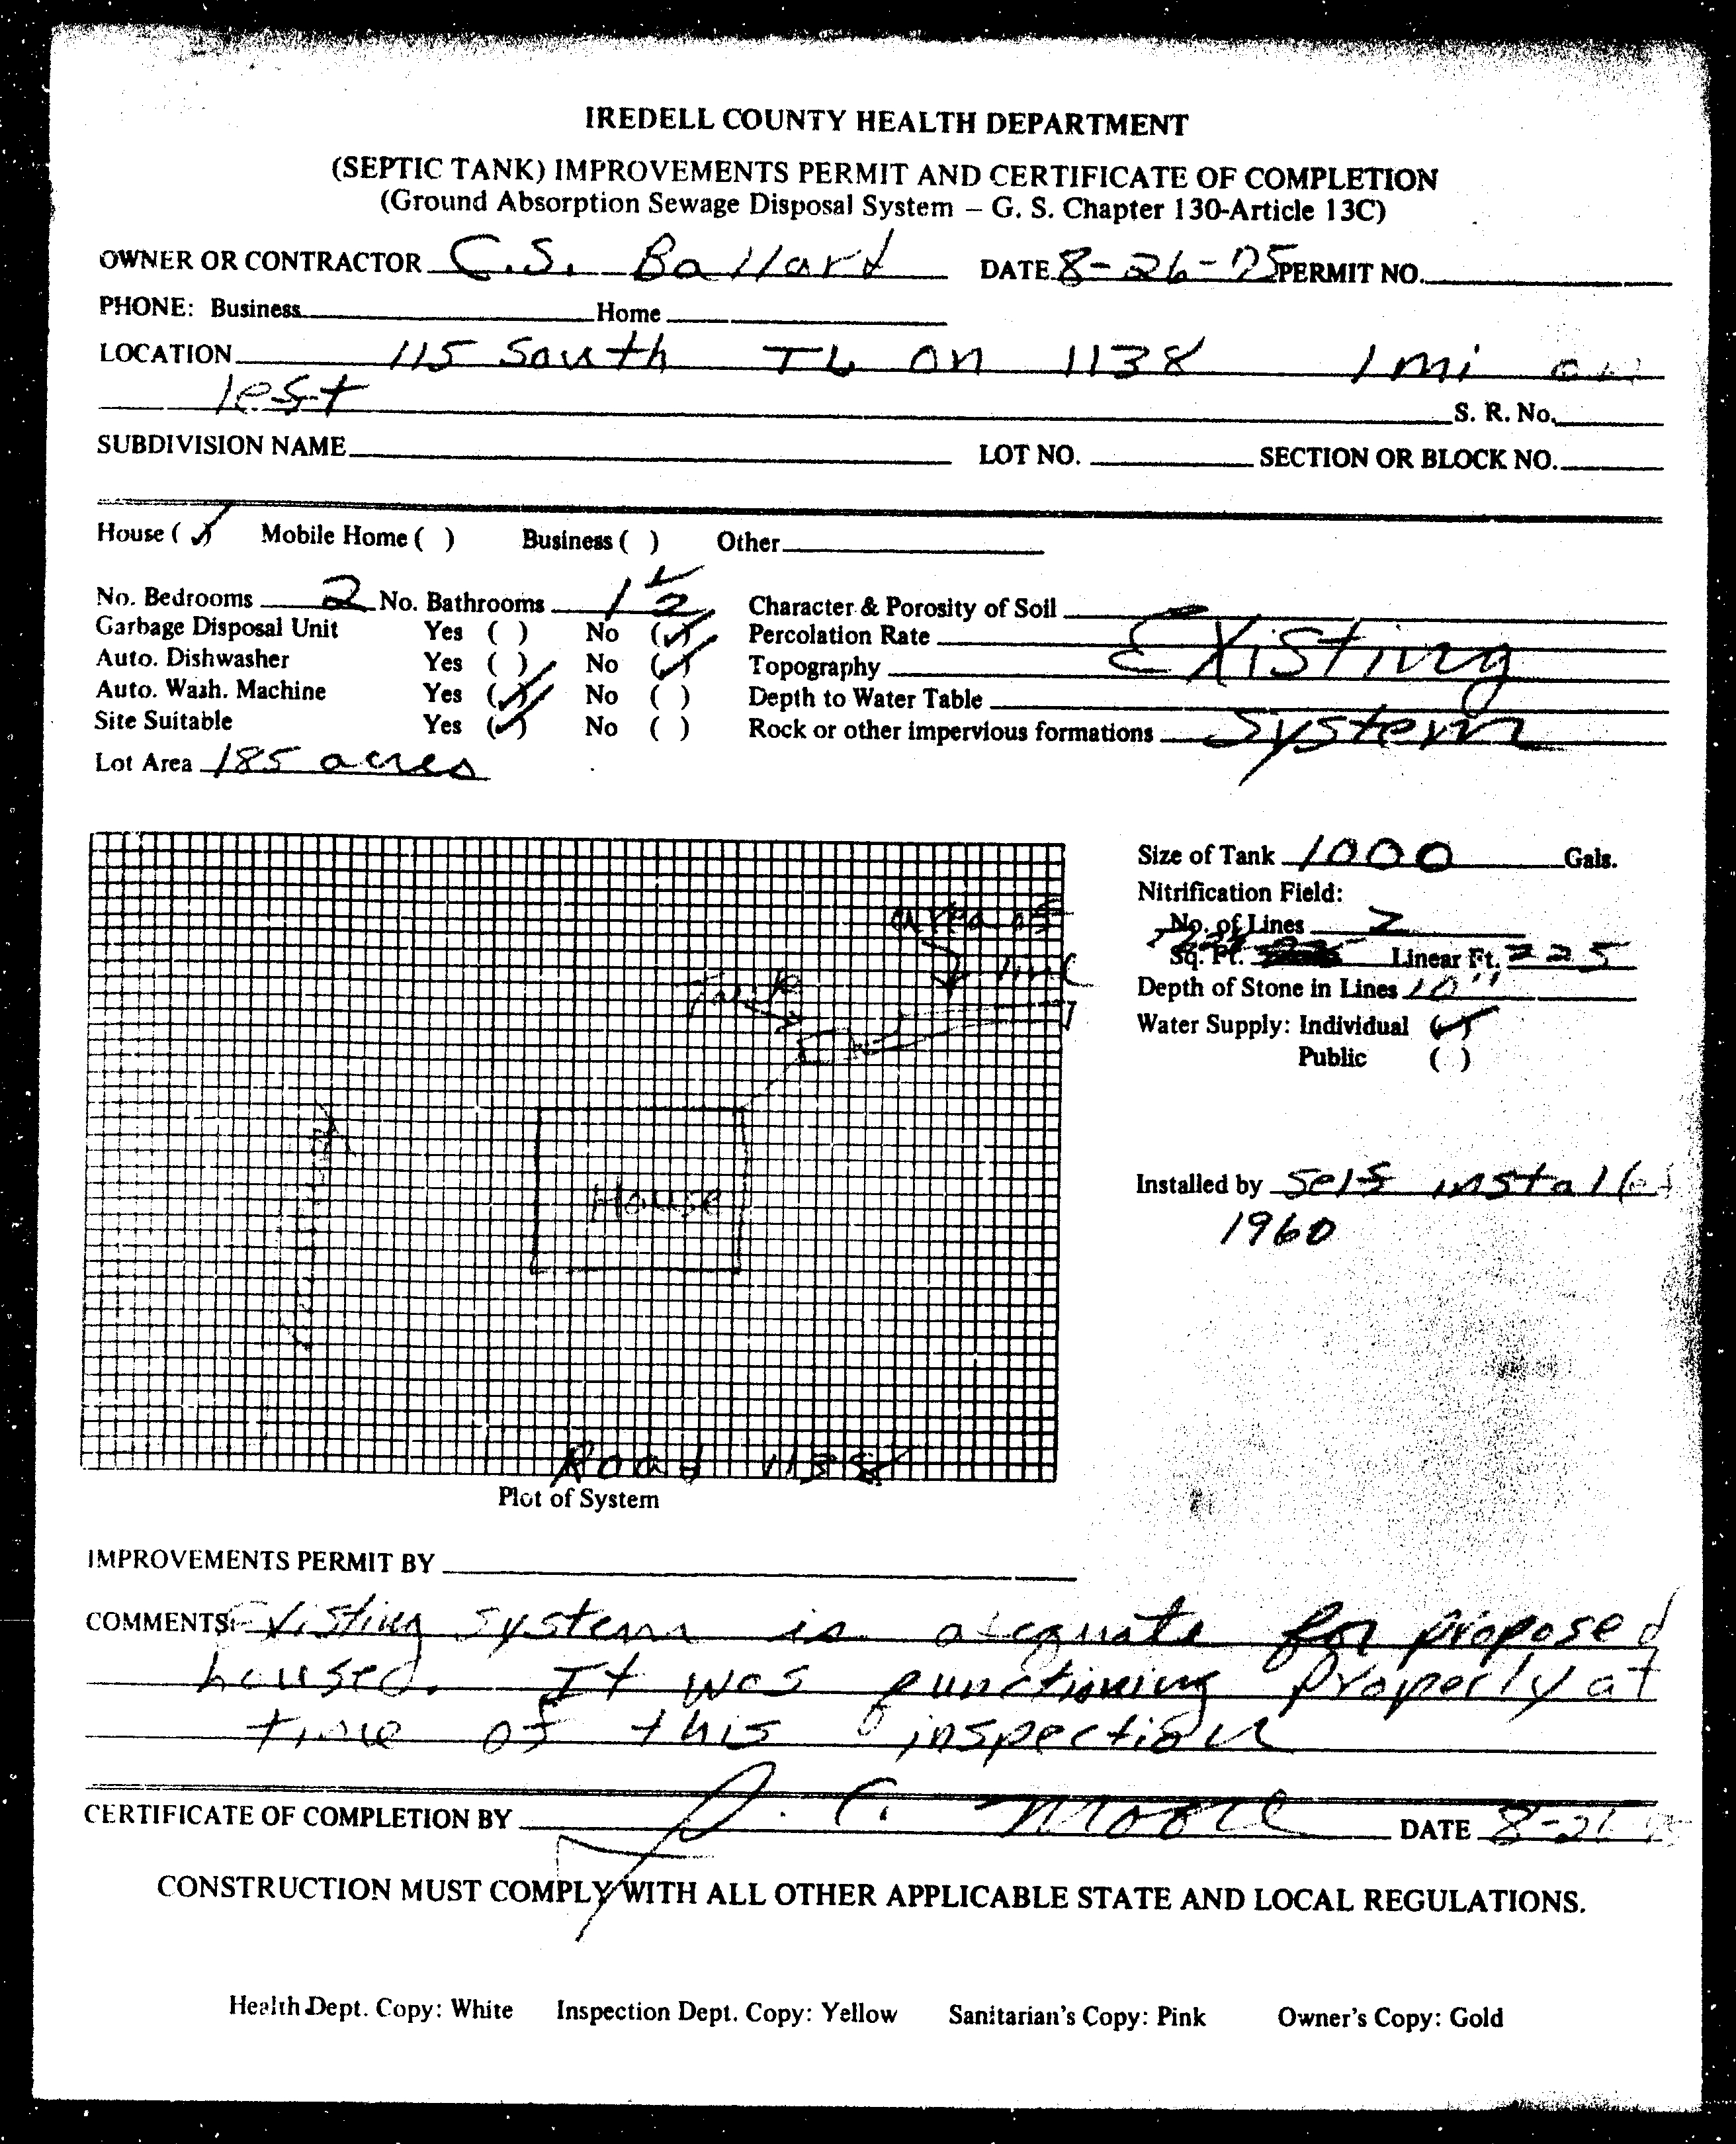 IREDELL COUNTY HEALTH DEPARTMENT
(SEPTIC TANK) IMPROVEMENTS PERMIT AND CERTIFICATE OF COMPLETION
(Ground Absorption Sewage Disposal System – G. S. Chapter 130-Article 13C)
OWNER OR CONTRACTOR C.S. Ballard DATE 8-26-75 PERMIT NO.
PHONE: Business Home
LOCATION 115 South TL on 1138 1 mi on
left S. R. No.
SUBDIVISION NAME LOT NO. SECTION OR BLOCK NO.
House (✓) Mobile Home ( ) Business ( ) Other
No. Bedrooms 2 No. Bathrooms 1 1/2 Character & Porosity of Soil
Garbage Disposal Unit Yes ( ) No (✓) Percolation Rate Existing
Auto. Dishwasher Yes ( ) No (✓) Topography
Auto. Wash. Machine Yes (✓) No ( ) Depth to Water Table
Site Suitable Yes (✓) No ( ) Rock or other impervious formations System
Lot Area 185 acres
Size of Tank 1000 Gals.
Nitrification Field:
No. of Lines 2
Sq. Ft. Linear Ft. 225
Depth of Stone in Lines 10"
Water Supply: Individual (✓)
Public ( )
area of
line
Tank
House
Installed by Self installed
1960
Road 1138
Plot of System
IMPROVEMENTS PERMIT BY
COMMENTS: Existing system is adequate for proposed
housed. It was functioning properly at
time of this inspection
CERTIFICATE OF COMPLETION BY J. C. Moore DATE 8-26-75
CONSTRUCTION MUST COMPLY WITH ALL OTHER APPLICABLE STATE AND LOCAL REGULATIONS.
Health Dept. Copy: White Inspection Dept. Copy: Yellow Sanitarian's Copy: Pink Owner's Copy: Gold